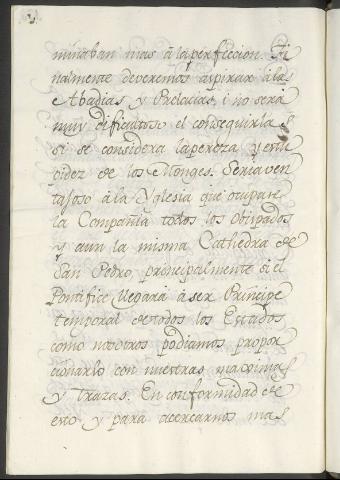 minaban mas â la perficcion. Fi
nalmente deveremos aspirar à las
Abadias y Prelacias, i no será
muy dificultoso el conseguirlas
si se considera la pereza y estu
pidez de los Monges. Seria ven
tajoso à la Yglesia que ocupare
la Compañia todos los Obispados
y aun la misma Cathedra de
San Pedro, principalmente si el
Pontifice llegara à ser Principe
temporal de todos los Estados
como nosotros podiamos propor
cionarlo con nuestras maximas
y trazas. En conformidad de
esto y para acercarnos mas